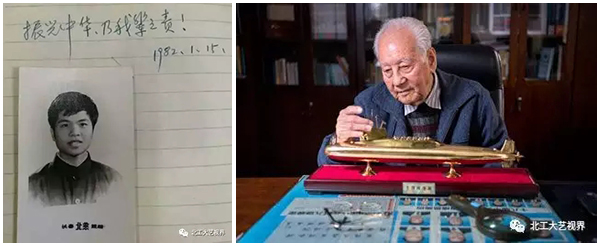 振兴中华,乃我辈之责!
1982.1.15.
北京
北工大艺视界
北工大艺视界